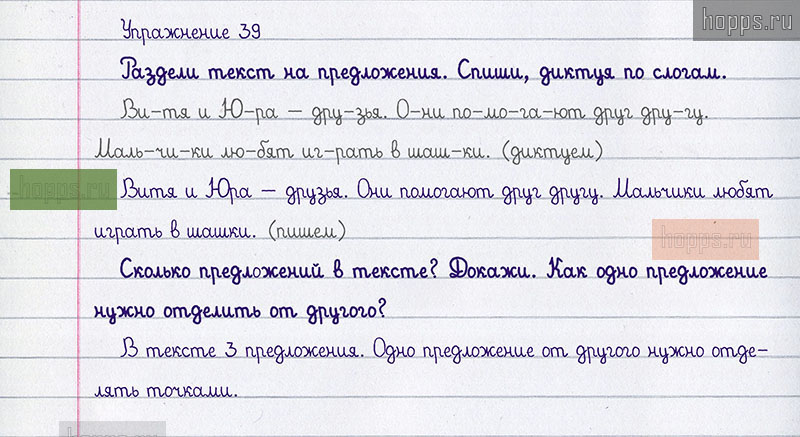 hopps.ru
Упражнение 39
Раздели текст на предложения. Спиши, диктуя по слогам.
Ви-тя и Ю-ра – дру-зья. О-ни по-мо-га-ют друг дру-гу.
Маль-чи-ки лю-бят иг-рать в шаш-ки. (диктуем)
hopps.ru
Витя и Юра – друзья. Они помогают друг другу. Мальчики любят
играть в шашки. (пишем)
hopps.ru
Сколько предложений в тексте? Докажи. Как одно предложение
нужно отделить от другого?
В тексте 3 предложения. Одно предложение от другого нужно отде-
лять точками.
hopps.ru